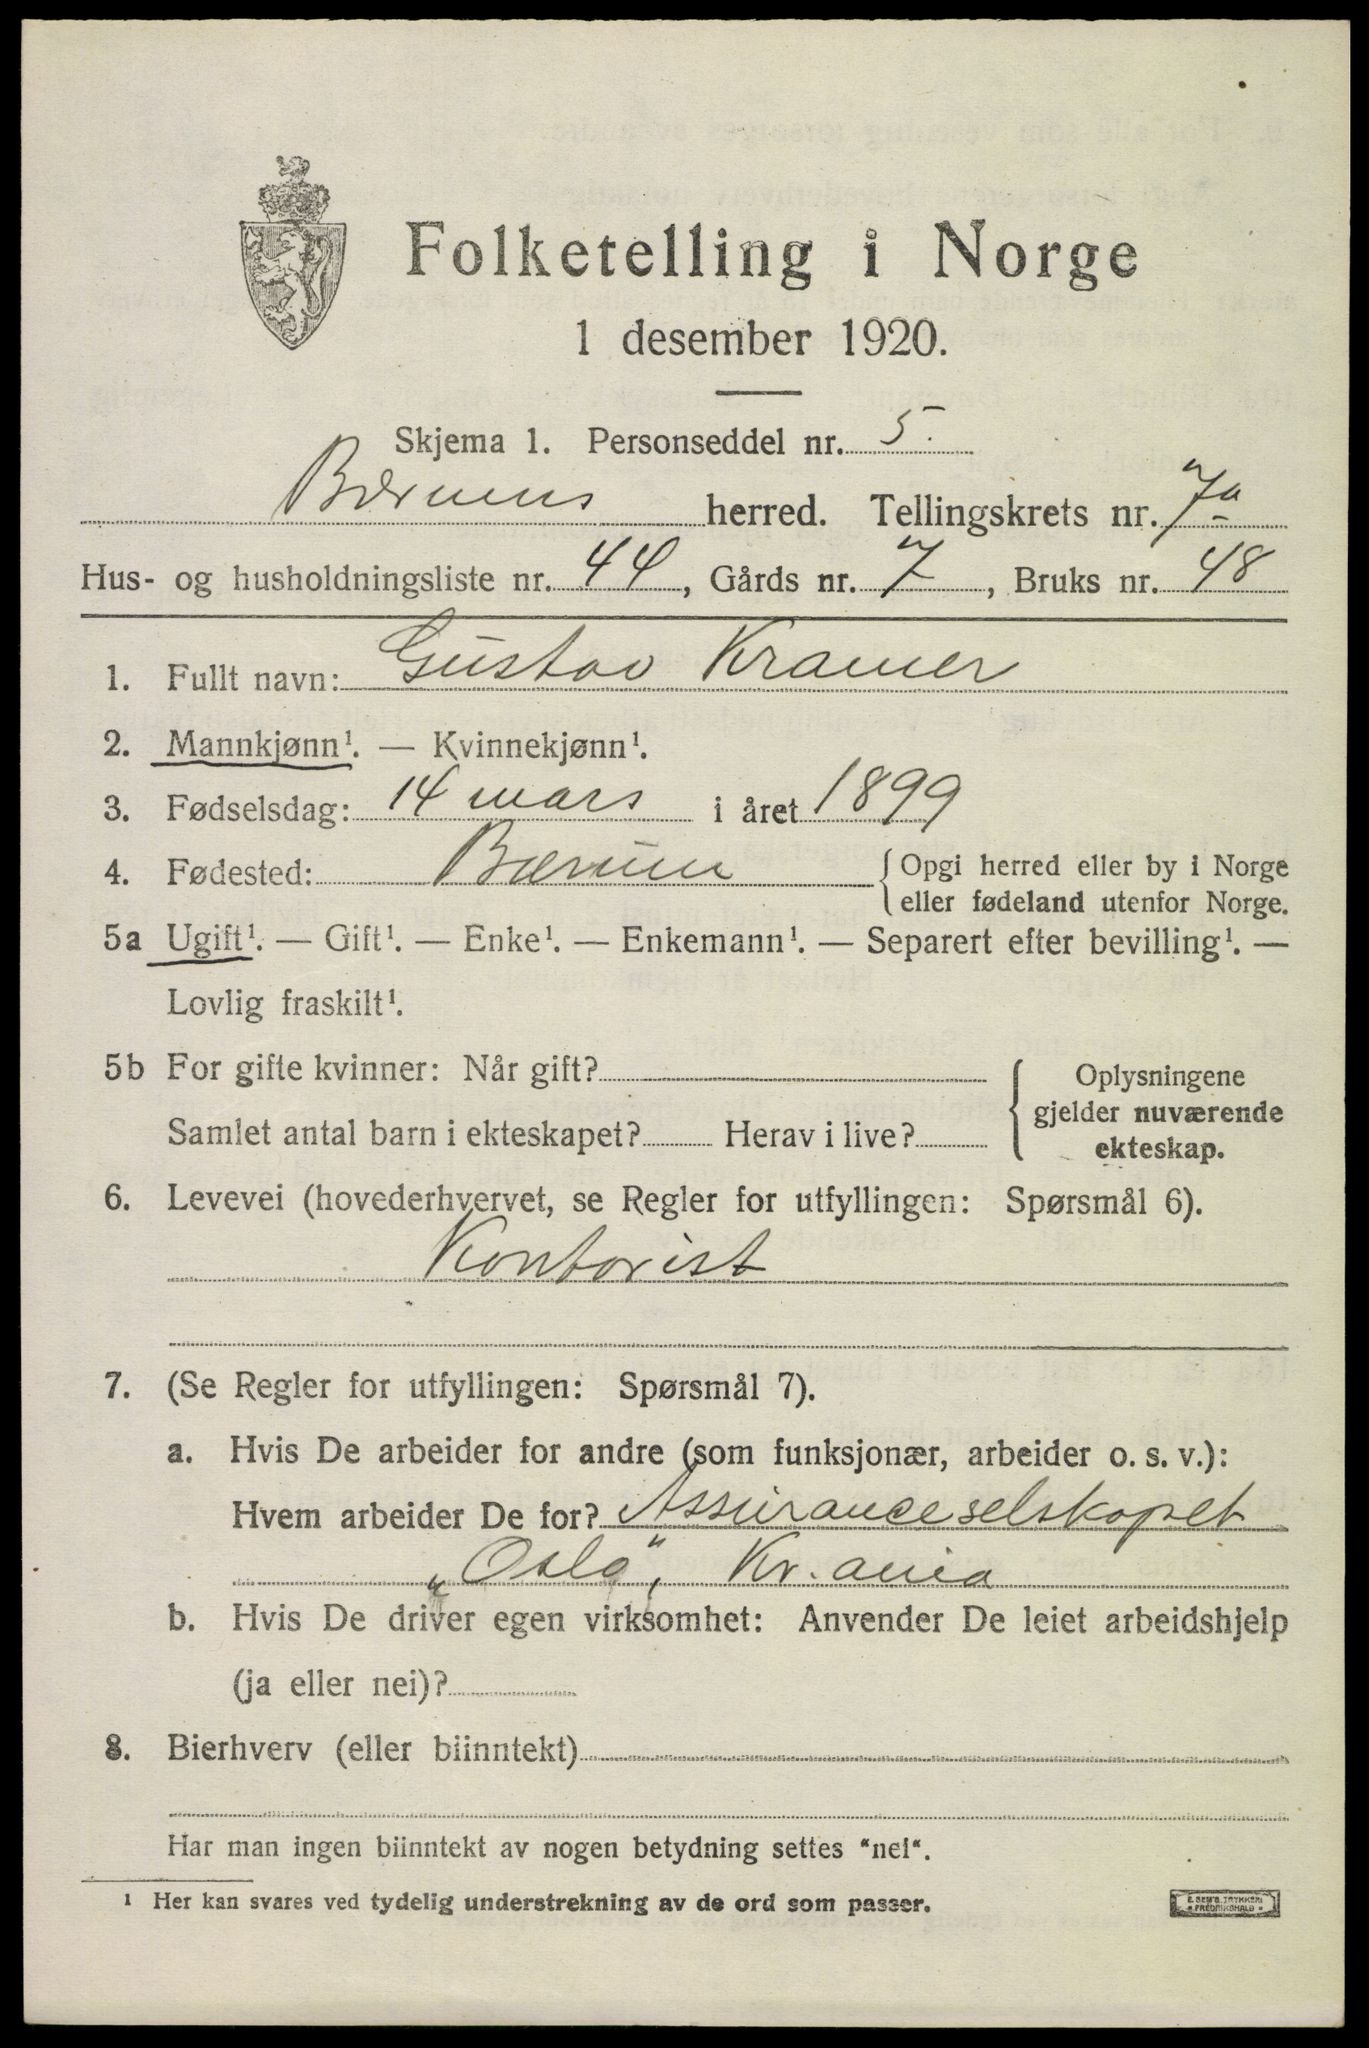 Folketelling i Norge
1 desember 1920.
Skjema 1. Personseddel nr. 5.
Bærums herred. Tellingskrets nr. 7a
Hus- og husholdningsliste nr. 44, Gårds nr. 7, Bruks nr. 48
1. Fullt navn: Gustav Kramer
2. Mannkjønn¹. — Kvinnekjønn¹.
3. Fødselsdag: 14 mars i året 1899
4. Fødested: Bærum { Opgi herred eller by i Norge
eller fødeland utenfor Norge.
5a Ugift¹. — Gift¹. — Enke¹. — Enkemann¹. — Separert efter bevilling¹. —
Lovlig fraskilt¹.
5b For gifte kvinner: Når gift?
Samlet antal barn i ekteskapet? Herav i live?
{ Oplysningene
gjelder nuværende
ekteskap.
6. Levevei (hovederhvervet, se Regler for utfyllingen: Spørsmål 6).
Kontorist
7. (Se Regler for utfyllingen: Spørsmål 7).
a. Hvis De arbeider for andre (som funksjonær, arbeider o. s. v.):
Hvem arbeider De for? Assuranceselskapet
„Oslo", Kr.ania
b. Hvis De driver egen virksomhet: Anvender De leiet arbeidshjelp
(ja eller nei)?
8. Bierhverv (eller biinntekt)
Har man ingen biinntekt av nogen betydning settes "nei".
¹ Her kan svares ved tydelig understrekning av de ord som passer.
E. SEM'S TRYKKERI
FREDRIKSHALD